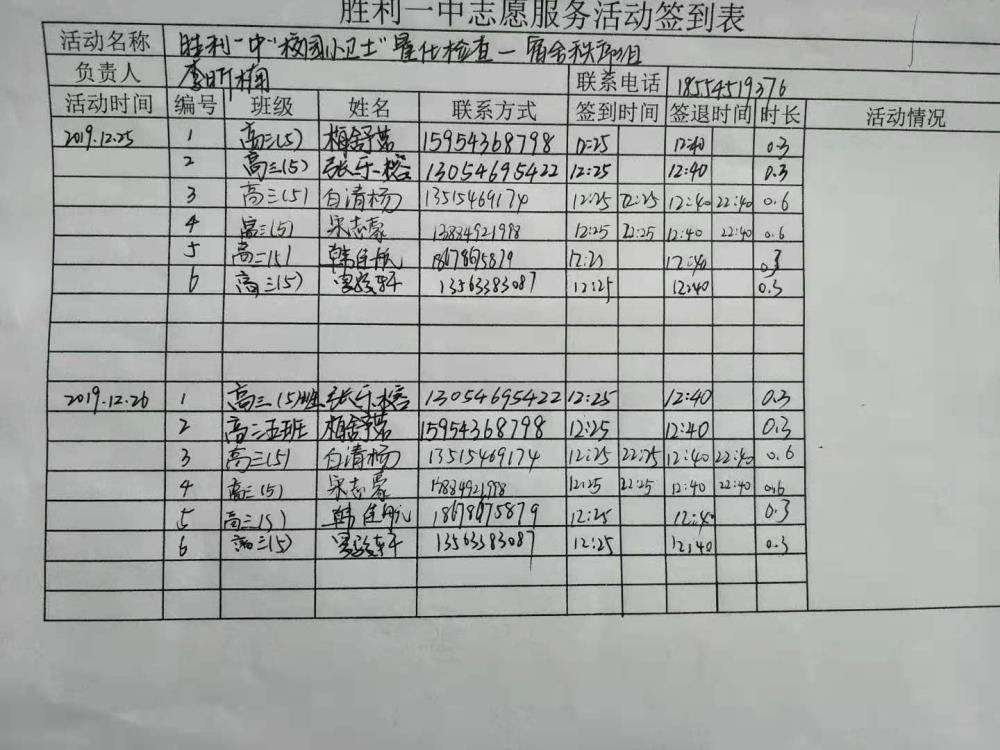 胜利一中志愿服务活动签到表
活动名称 胜利一中"校园小卫士"量化检查—宿舍秩序组
负责人 李昕楠 联系电话 18554519376
活动时间 编号 班级 姓名 联系方式 签到时间 签退时间 时长 活动情况
2019.12.25 1 高三(5) 柏舒茗 15954368798 12:25 12:40 0.3
2 高三(5) 张乐榕 13054695422 12:25 12:40 0.3
3 高三(5) 白清杨 13515469174 12:25 22:25 12:40 22:40 0.6
4 高三(5) 宋志豪 12:25 22:25 12:40 22:40 0.6
5 高三(5) 韩佳航 12:25 12:40 0.3
6 高三(5) 13563383087 12:25 12:40 0.3
2019.12.26 1 高三(5)班 张乐榕 13054695422 12:25 12:40 0.3
2 高三五班 柏舒茗 15954368798 12:25 12:40 0.3
3 高三(5) 白清杨 13515469174 12:25 22:25 12:40 22:40 0.6
4 高三(5) 宋志豪 12:25 22:25 12:40 22:40 0.6
5 高三(5) 韩佳航 18678675879 12:25 12:40 0.3
6 高三(5) 13563383087 12:25 12:40 0.3